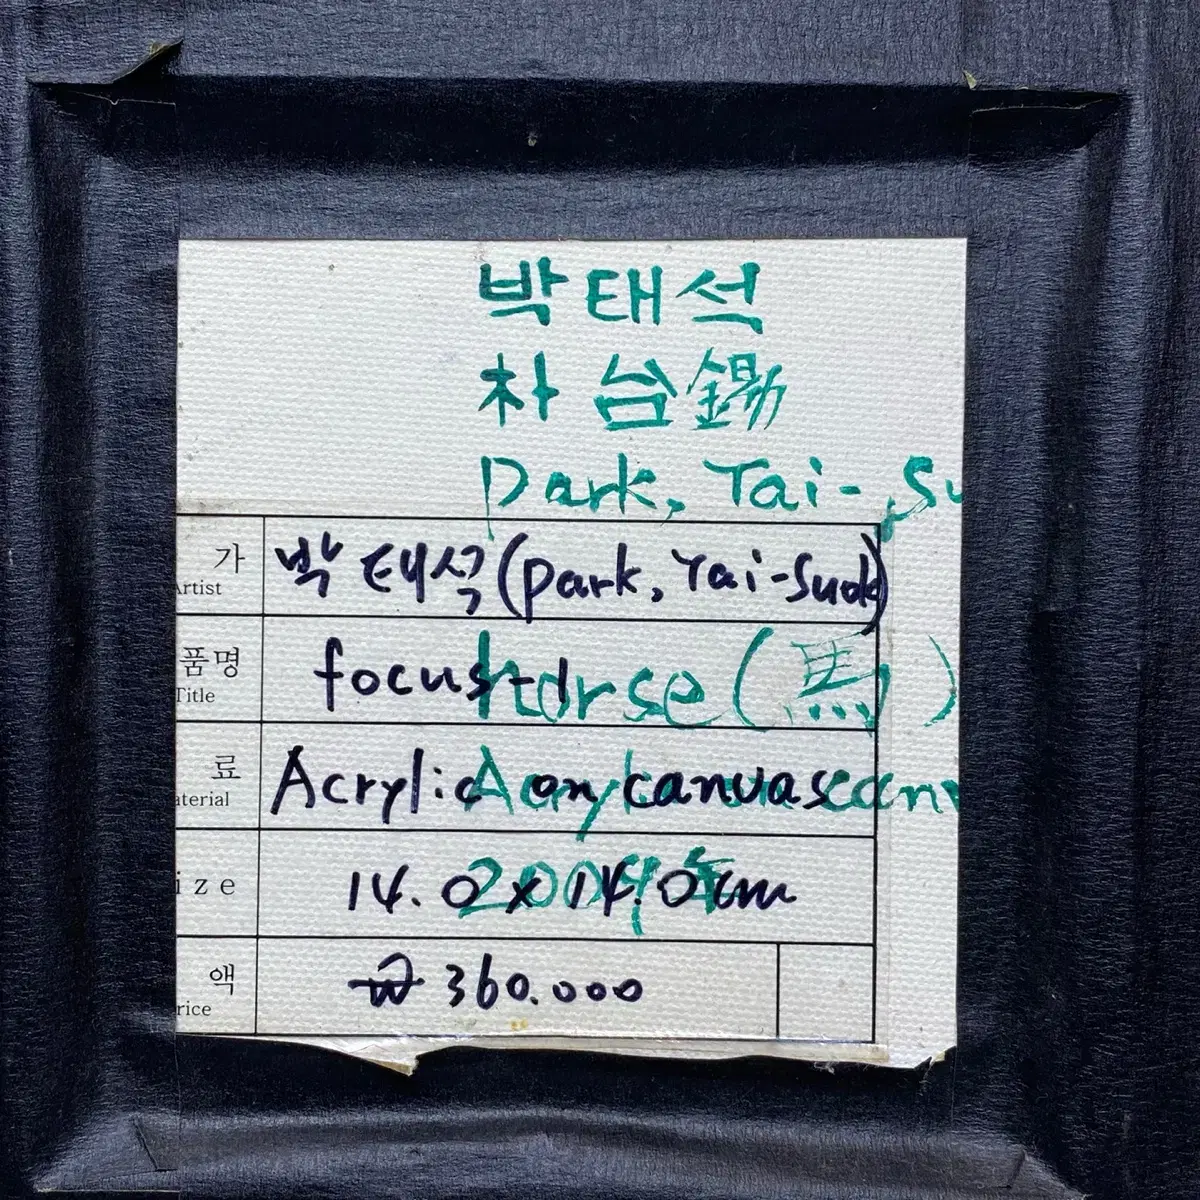 박태석
朴 台錫
Park, Tai-Su
가 박태석(park, Tai-Suok)
Artist
품명 focus-1
Title Horse (馬)
료 Acrylic on canvas
aterial Acryl canv
ize 14.0x14.0cm
2009年
액 ₩360.000
rice